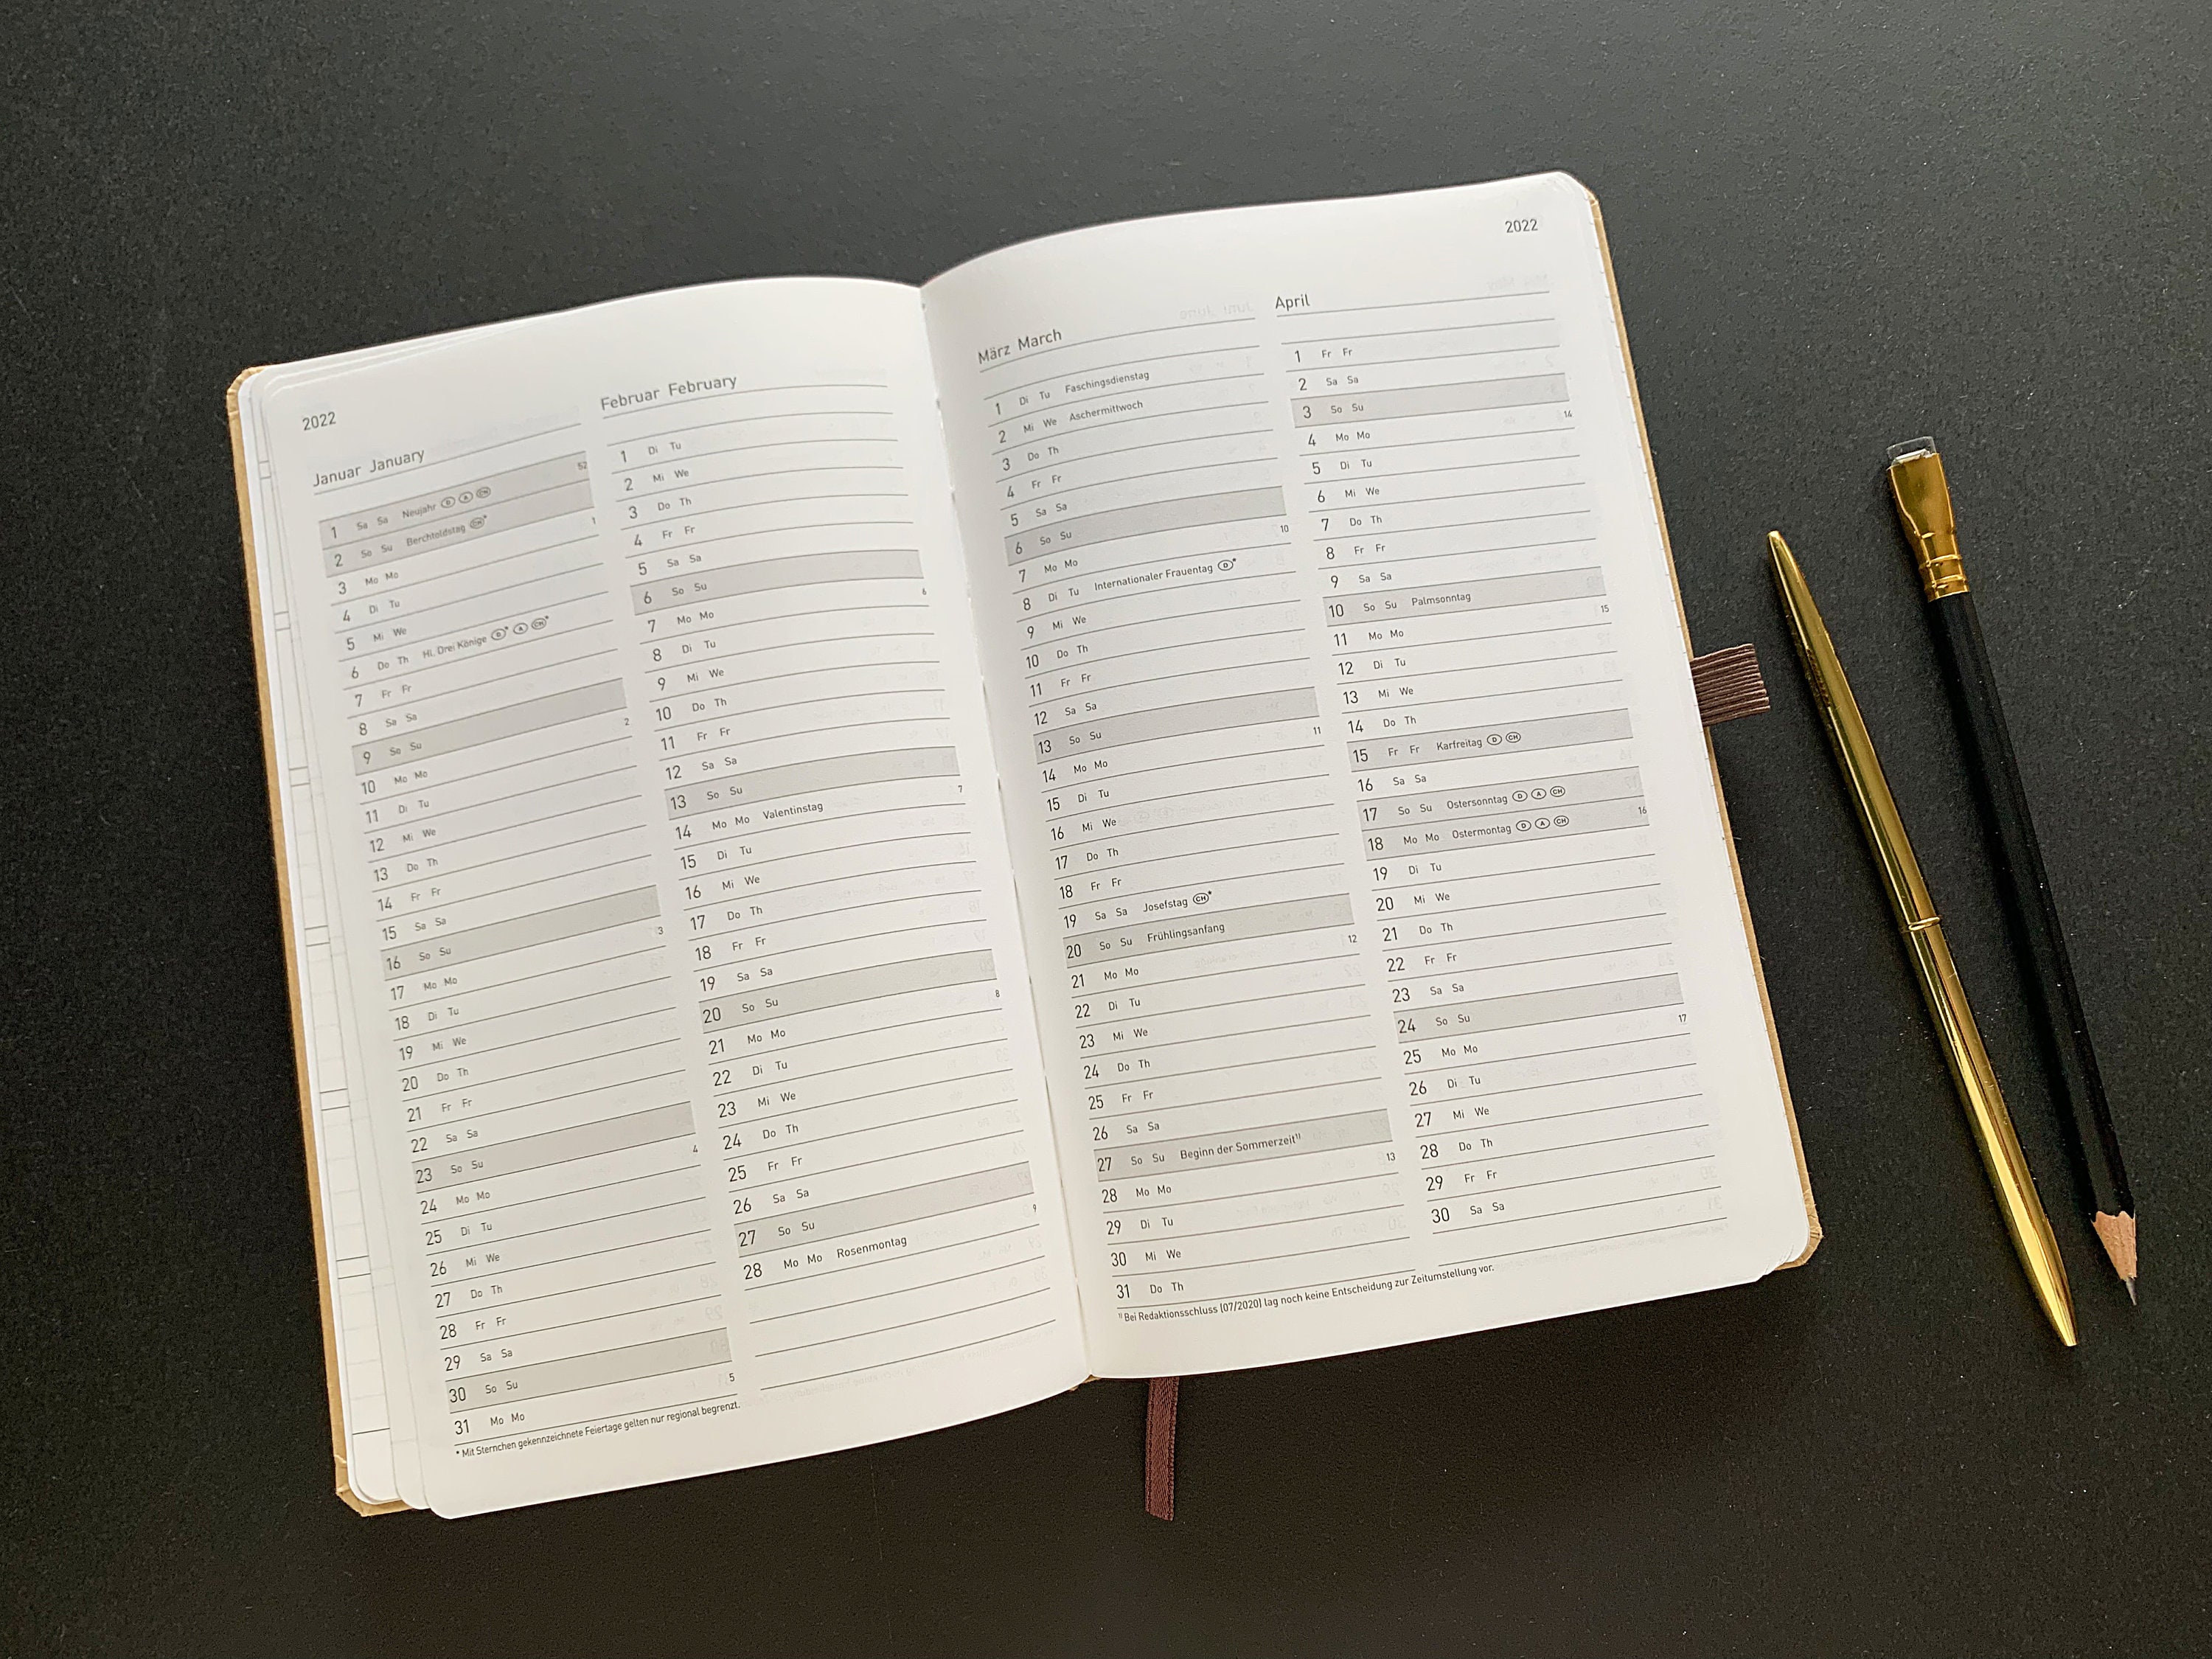 2022
Januar January
1 Sa Sa Neujahr D A CH 52
2 So Su Berchtoldstag CH*
3 Mo Mo 1
4 Di Tu
5 Mi We
6 Do Th Hl. Drei Könige D* A CH*
7 Fr Fr
8 Sa Sa
9 So Su
10 Mo Mo 2
11 Di Tu
12 Mi We
13 Do Th
14 Fr Fr
15 Sa Sa
16 So Su
17 Mo Mo 3
18 Di Tu
19 Mi We
20 Do Th
21 Fr Fr
22 Sa Sa
23 So Su
24 Mo Mo 4
25 Di Tu
26 Mi We
27 Do Th
28 Fr Fr
29 Sa Sa
30 So Su
31 Mo Mo 5
* Mit Sternchen gekennzeichnete Feiertage gelten nur regional begrenzt.
Februar February
1 Di Tu
2 Mi We
3 Do Th
4 Fr Fr
5 Sa Sa
6 So Su
7 Mo Mo 6
8 Di Tu
9 Mi We
10 Do Th
11 Fr Fr
12 Sa Sa
13 So Su
14 Mo Mo Valentinstag 7
15 Di Tu
16 Mi We
17 Do Th
18 Fr Fr
19 Sa Sa
20 So Su
21 Mo Mo 8
22 Di Tu
23 Mi We
24 Do Th
25 Fr Fr
26 Sa Sa
27 So Su
28 Mo Mo Rosenmontag 9
2022
März March
1 Di Tu Faschingsdienstag
2 Mi We Aschermittwoch
3 Do Th
4 Fr Fr
5 Sa Sa
6 So Su
7 Mo Mo 10
8 Di Tu Internationaler Frauentag D*
9 Mi We
10 Do Th
11 Fr Fr
12 Sa Sa
13 So Su
14 Mo Mo 11
15 Di Tu
16 Mi We
17 Do Th
18 Fr Fr
19 Sa Sa Josefstag CH*
20 So Su Frühlingsanfang
21 Mo Mo 12
22 Di Tu
23 Mi We
24 Do Th
25 Fr Fr
26 Sa Sa
27 So Su Beginn der Sommerzeit¹⁾
28 Mo Mo 13
29 Di Tu
30 Mi We
31 Do Th
¹⁾ Bei Redaktionsschluss (07/2020) lag noch keine Entscheidung zur Zeitumstellung vor.
April
1 Fr Fr
2 Sa Sa
3 So Su
4 Mo Mo 14
5 Di Tu
6 Mi We
7 Do Th
8 Fr Fr
9 Sa Sa
10 So Su Palmsonntag
11 Mo Mo 15
12 Di Tu
13 Mi We
14 Do Th
15 Fr Fr Karfreitag D CH
16 Sa Sa
17 So Su Ostersonntag D A CH
18 Mo Mo Ostermontag D A CH 16
19 Di Tu
20 Mi We
21 Do Th
22 Fr Fr
23 Sa Sa
24 So Su
25 Mo Mo 17
26 Di Tu
27 Mi We
28 Do Th
29 Fr Fr
30 Sa Sa